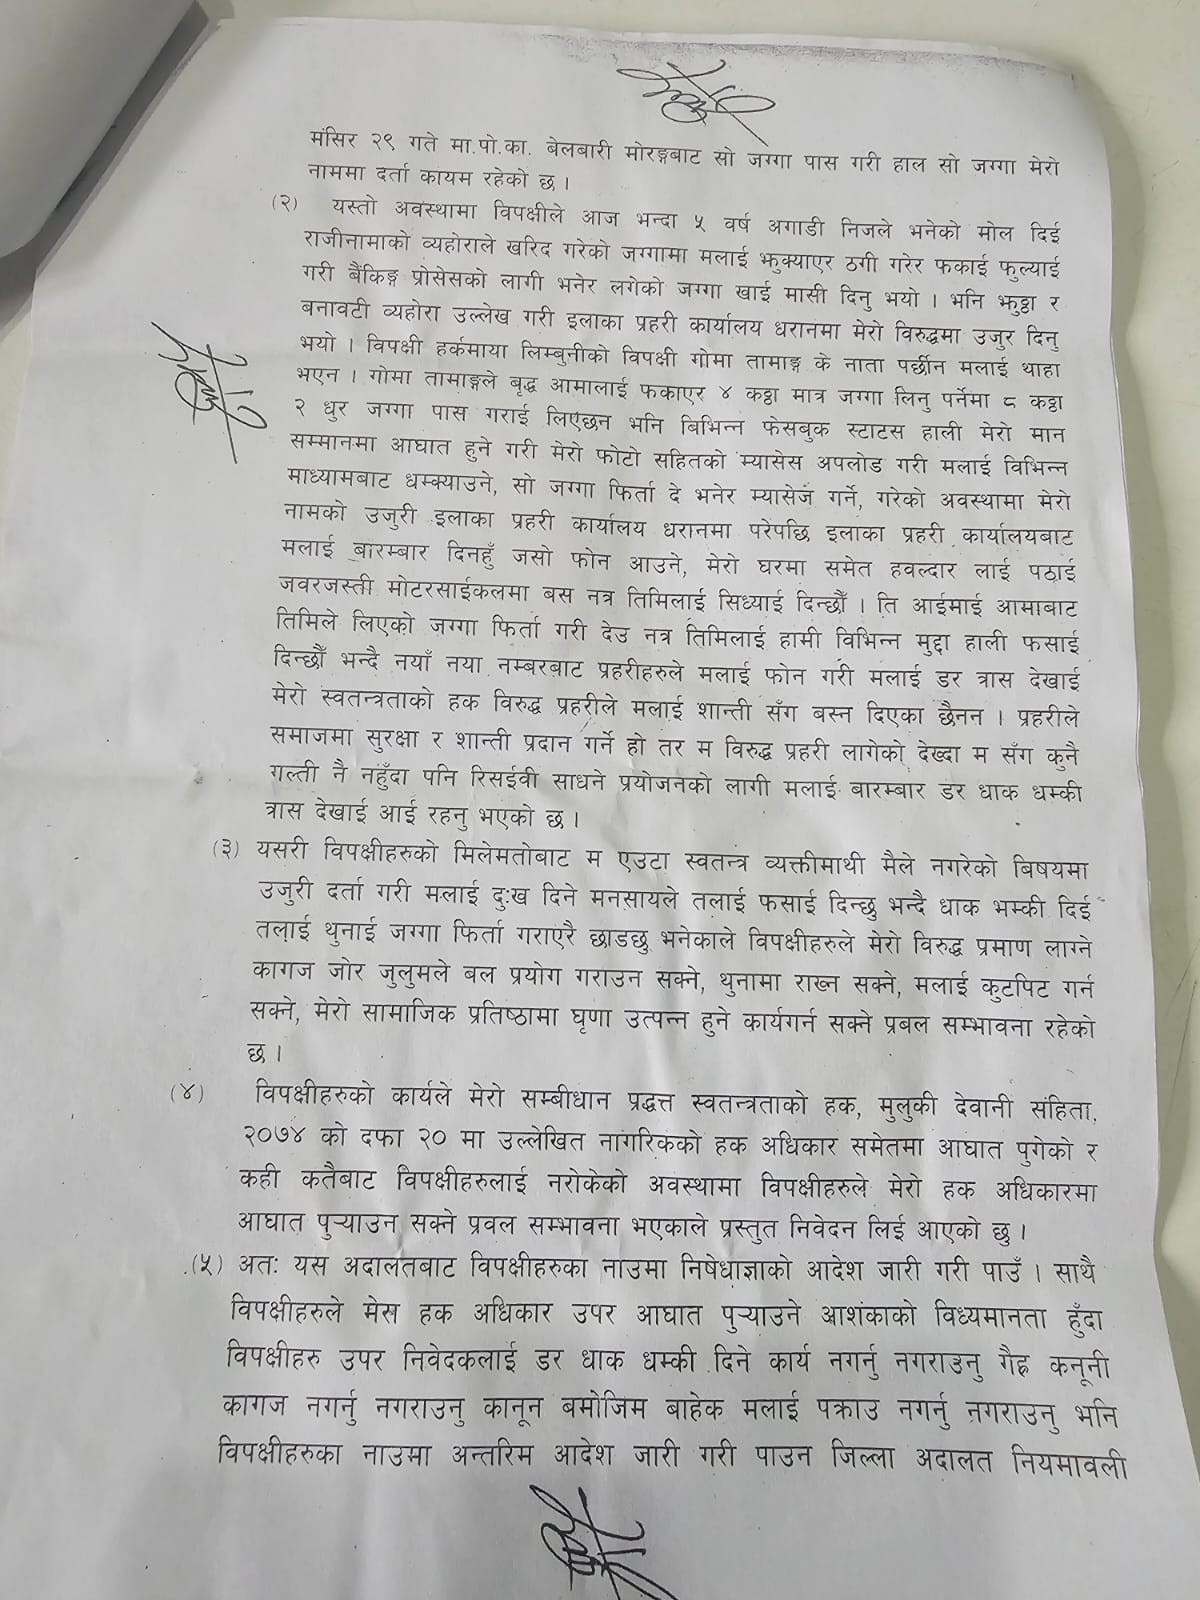 मंसिर २९ गते मा.पो.का. बेलबारी मोरङ्गबाट सो जग्गा पास गरी हाल सो जग्गा मेरो
नाममा दर्ता कायम रहेको छ ।
(२) यस्तो अवस्थामा विपक्षीले आज भन्दा ५ वर्ष अगाडी निजले भनेको मोल दिई
राजीनामाको व्यहोराले खरिद गरेको जग्गामा मलाई झुक्याएर ठगी गरेर फकाई फुल्याई
गरी बैंकिङ्ग प्रोसेसको लागी भनेर लगेको जग्गा खाई मासी दिनु भयो । भनि झुठ्ठा र
बनावटी व्यहोरा उल्लेख गरी इलाका प्रहरी कार्यालय धरानमा मेरो विरुद्धमा उजुर दिनु
भयो । विपक्षी हर्कमाया लिम्बुनीको विपक्षी गोमा तामाङ्ग के नाता पर्छीन मलाई थाहा
भएन । गोमा तामाङ्गले बृद्ध आमालाई फकाएर ४ कठ्ठा मात्र जग्गा लिनु पर्नेमा ८ कठ्ठा
२ धुर जग्गा पास गराई लिएछन भनि बिभिन्न फेसबुक स्टाटस हाली मेरो मान
सम्मानमा आघात हुने गरी मेरो फोटो सहितको म्यासेस अपलोड गरी मलाई विभिन्न
माध्यामबाट धम्क्याउने, सो जग्गा फिर्ता दे भनेर म्यासेज गर्ने, गरेको अवस्थामा मेरो
नामको उजुरी इलाका प्रहरी कार्यालय धरानमा परेपछि इलाका प्रहरी कार्यालयबाट
मलाई बारम्बार दिनहुँ जसो फोन आउने, मेरो घरमा समेत हवल्दार लाई पठाई
जवरजस्ती मोटरसाईकलमा बस नत्र तिमिलाई सिध्याई दिन्छौँ । ति आईमाई आमाबाट
तिमिले लिएको जग्गा फिर्ता गरी देउ नत्र तिमिलाई हामी विभिन्न मुद्दा हाली फसाई
दिन्छौँ भन्दै नयाँ नया नम्बरबाट प्रहरीहरुले मलाई फोन गरी मलाई डर त्रास देखाई
मेरो स्वतन्त्रताको हक विरुद्ध प्रहरीले मलाई शान्ती सँग बस्न दिएका छैनन । प्रहरीले
समाजमा सुरक्षा र शान्ती प्रदान गर्ने हो तर म विरुद्ध प्रहरी लागेको देख्दा म सँग कुनै
गल्ती नै नहुँदा पनि रिसईवी साधने प्रयोजनको लागी मलाई बारम्बार डर धाक धम्की
त्रास देखाई आई रहनु भएको छ ।
(३) यसरी विपक्षीहरुको मिलेमतोबाट म एउटा स्वतन्त्र व्यक्तीमाथी मैले नगरेको बिषयमा
उजुरी दर्ता गरी मलाई दुःख दिने मनसायले तलाई फसाई दिन्छु भन्दै धाक भम्की दिई
तलाई थुनाई जग्गा फिर्ता गराएरै छाडछु भनेकाले विपक्षीहरुले मेरो विरुद्ध प्रमाण लाग्ने
कागज जोर जुलुमले बल प्रयोग गराउन सक्ने, थुनामा राख्न सक्ने, मलाई कुटपिट गर्न
सक्ने, मेरो सामाजिक प्रतिष्ठामा घृणा उत्पन्न हुने कार्यगर्न सक्ने प्रबल सम्भावना रहेको
छ ।
(४) विपक्षीहरुको कार्यले मेरो सम्बीधान प्रद्धत्त स्वतन्त्रताको हक, मुलुकी देवानी संहिता,
२०७४ को दफा २० मा उल्लेखित नागरिकको हक अधिकार समेतमा आघात पुगेको र
कही कतैबाट विपक्षीहरुलाई नरोकेको अवस्थामा विपक्षीहरुले मेरो हक अधिकारमा
आघात पुर्‍याउन सक्ने प्रवल सम्भावना भएकाले प्रस्तुत निवेदन लिई आएको छु ।
(५) अतः यस अदालतबाट विपक्षीहरुका नाउमा निषेधाज्ञाको आदेश जारी गरी पाउँ । साथै
विपक्षीहरुले मेरो हक अधिकार उपर आघात पुर्‍याउने आशंकाको विध्यमानता हुँदा
विपक्षीहरु उपर निवेदकलाई डर धाक धम्की दिने कार्य नगर्नु नगराउनु गैह्र कनूनी
कागज नगर्नु नगराउनु कानून बमोजिम बाहेक मलाई पक्राउ नगर्नु नगराउनु भनि
विपक्षीहरुका नाउमा अन्तरिम आदेश जारी गरी पाउन जिल्ला अदालत नियमावली